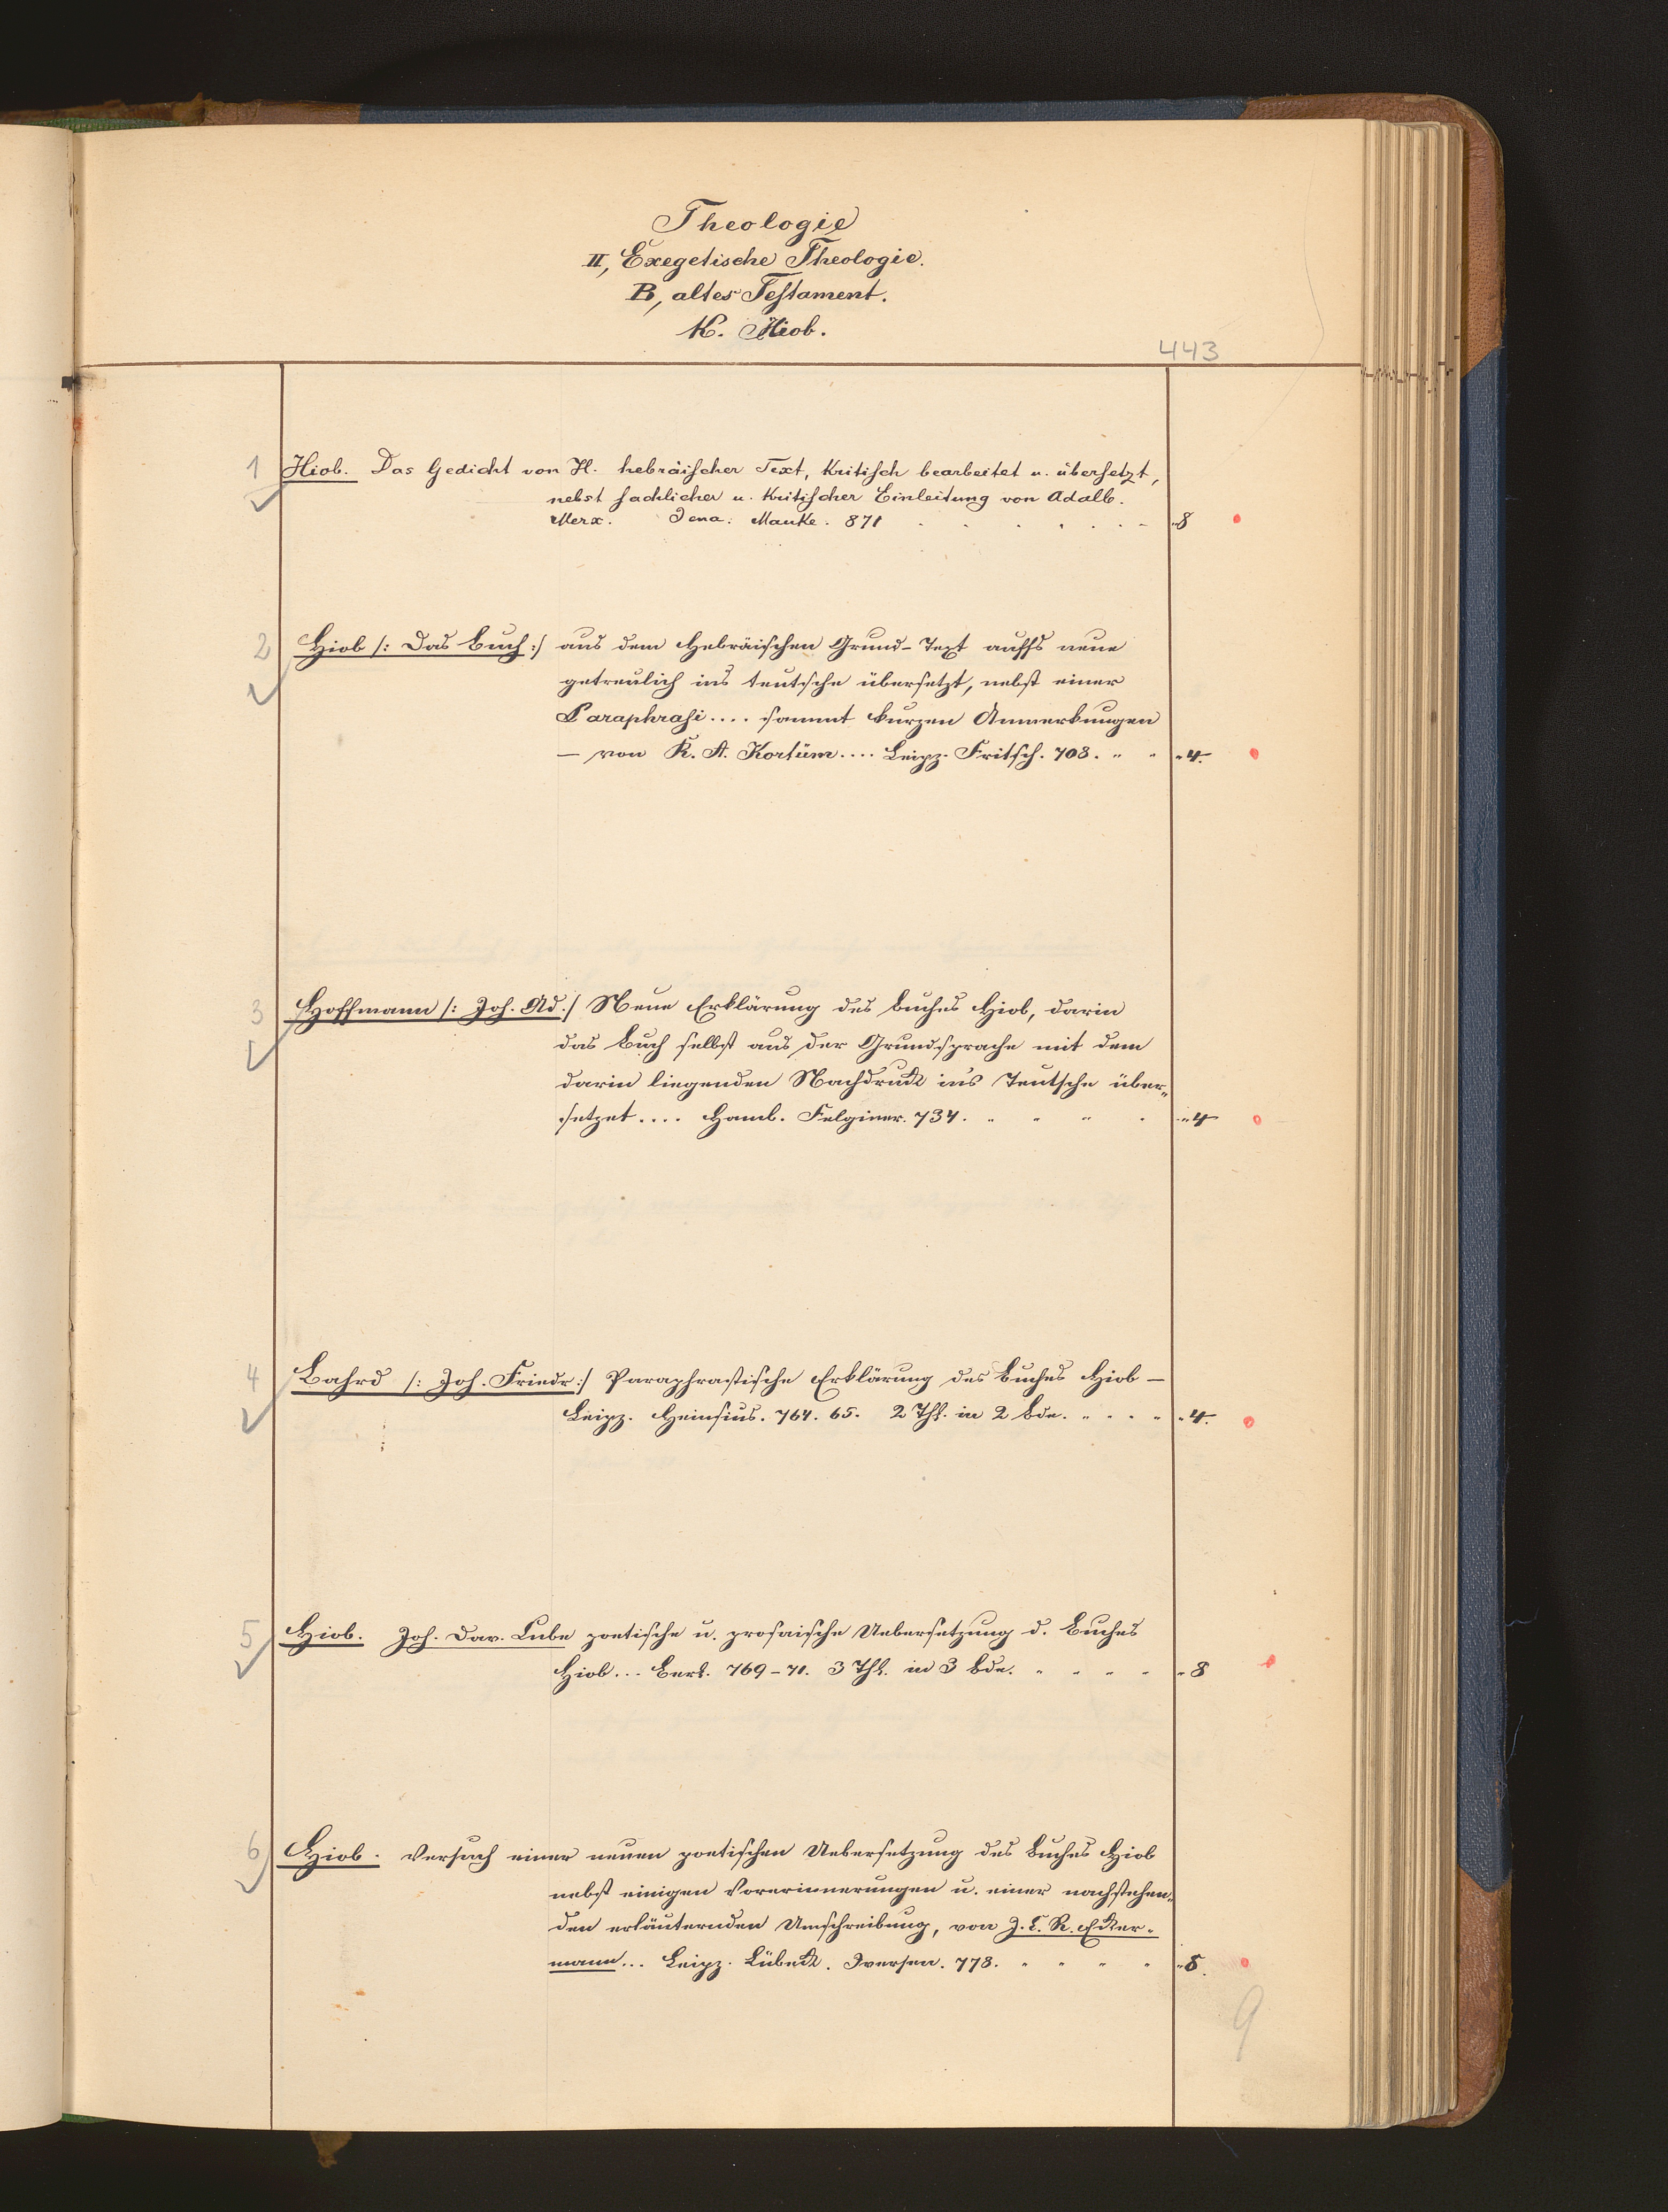 Theologie
II, Exegetische Theologie.
B, altes Testament.
K. Hiob.
443
1 Hiob. Das Gedicht von H. hebräischer Text, kritisch bearbeitet u. übersetzt,
nebst sachlicher u. kritischer Einleitung von Adalb.
Merx. Jena: Mauke. 871 . . . . . . . - „8
2 Hiob /: Das Buch :/ aus dem Hebräischen Grund-Text auffs neue
getreulich ins teutsche übersetzt, nebst einer
Paraphrasi .... sammt kurzen Anmerkungen
— von K. A. Kortüm .... Leipz. Fritsch. 708. „ „ „ 4.
3 Hoffmann /: Joh. Ad :/ Neue Erklärung des Buches Hiob, darin
das Buch selbst aus der Grundsprache mit dem
darin liegenden Nachdruck ins Teutsche über„
setzet .... Hamb. Felginer. 734. „ „ „ . „ 4
4 Bahrd /: Joh. Friedr :/ Paraphrastische Erklärung des Buches Hiob —
Leipz. Heinsius. 764. 65. 2 Thl. in 2 Bde. „ . . „ „ 4.
5 Hiob. Joh. Dav. Cube poetische u. prosaische Uebersetzung d. Buches
Hiob ... Berl. 769-71. 3 Thl. in 3 Bde. „ „ „ „ „ 8
6 Hiob. Versuch einer neuen poetischen Uebersetzung des Buches Hiob
nebst einigen Vorerinnerungen u. einer nachstehen„
den erläuternden Umschreibung, von J. C. R. Ecker-
mann ... Leipz. Lübeck. Iversen. 778. „ „ „ „ „ 8.
9